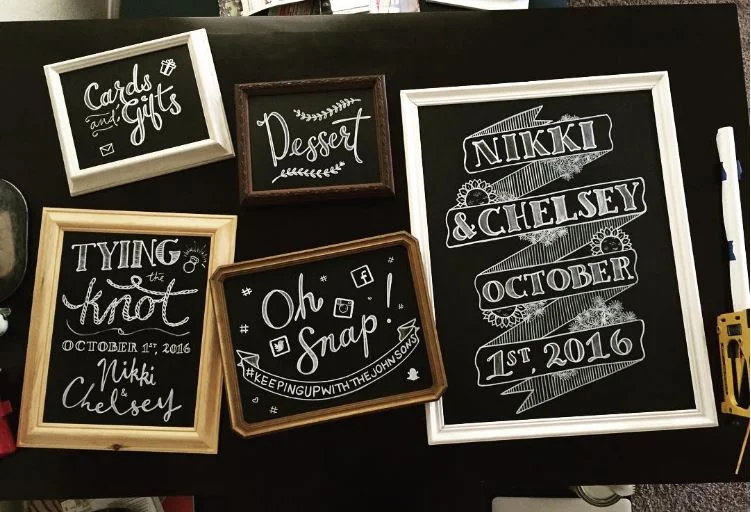 Cards
and
Gifts
Dessert
TYING
the
knot
OCTOBER 1ST, 2016
Nikki
&
Chelsey
Oh
Snap!
#KEEPINGUPWITHTHEJOHNSONS
NIKKI
& CHELSEY
OCTOBER
1ST, 2016